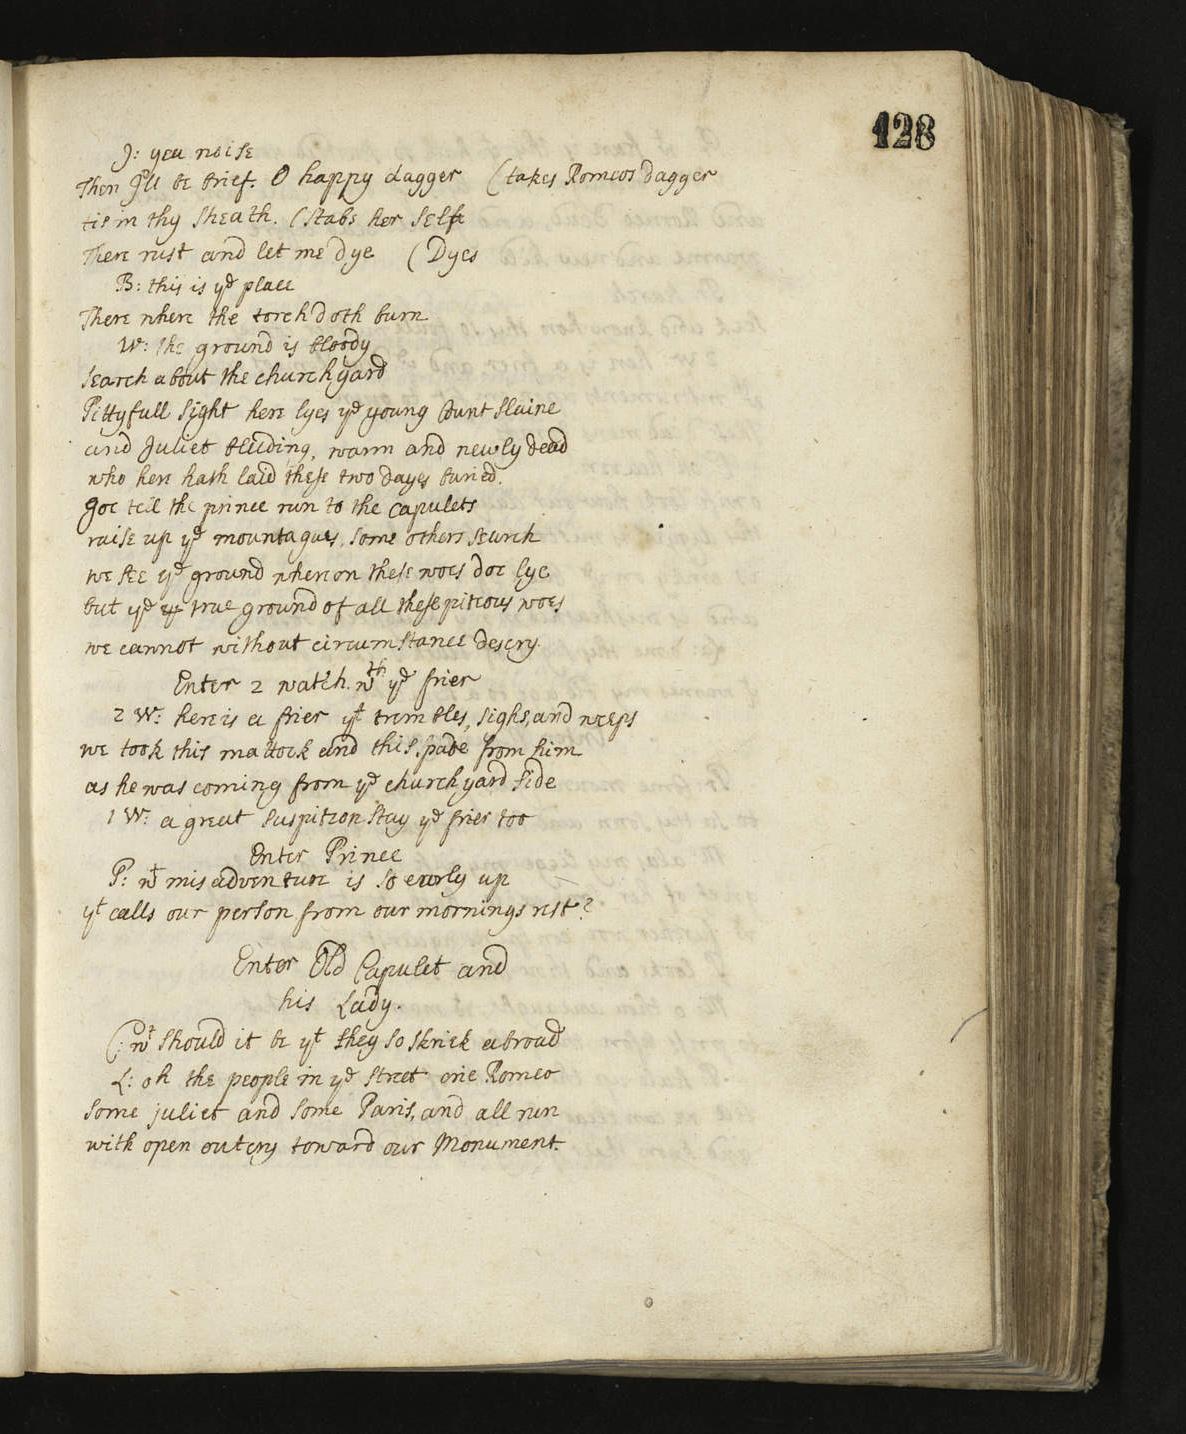 128
J: yea noise
Then I'll be brief. O happy dagger (takes Romeos dagger
tis in thy sheath. (stabs her self
There rust and let me dye (Dyes
B: this is ye place
There where the torch doth burn
W: the ground is bloody
search about the church yard
Pittyfull sight here lyes ye young Count slaine
and Juliet bleeding, warm and newly dead
who here hath laid these two dayes buried.
goe tell the prince run to the Capulets
raise up ye mountagues, some others search
we see ye ground whereon these woes doe lye
but ye true ground of all these piteous woes
we cannot without circumstance descry.
Enter 2 watch. wth ye frier
2 W: here is a frier yt trembles, sighs, and weeps
we took this mattock and this spade from him
as he was coming from ye church yard side
1 W: a great suspition stay ye frier too
Enter Prince
P: wt misadventure is so early up
yt calls our person from our mornings rest?
Enter Old Capulet and
his Lady.
C: wt should it be yt they so skriek abroad
L: oh the people in ye street crie Romeo
some juliet and some Paris, and all run
with open outcry toward our Monument.